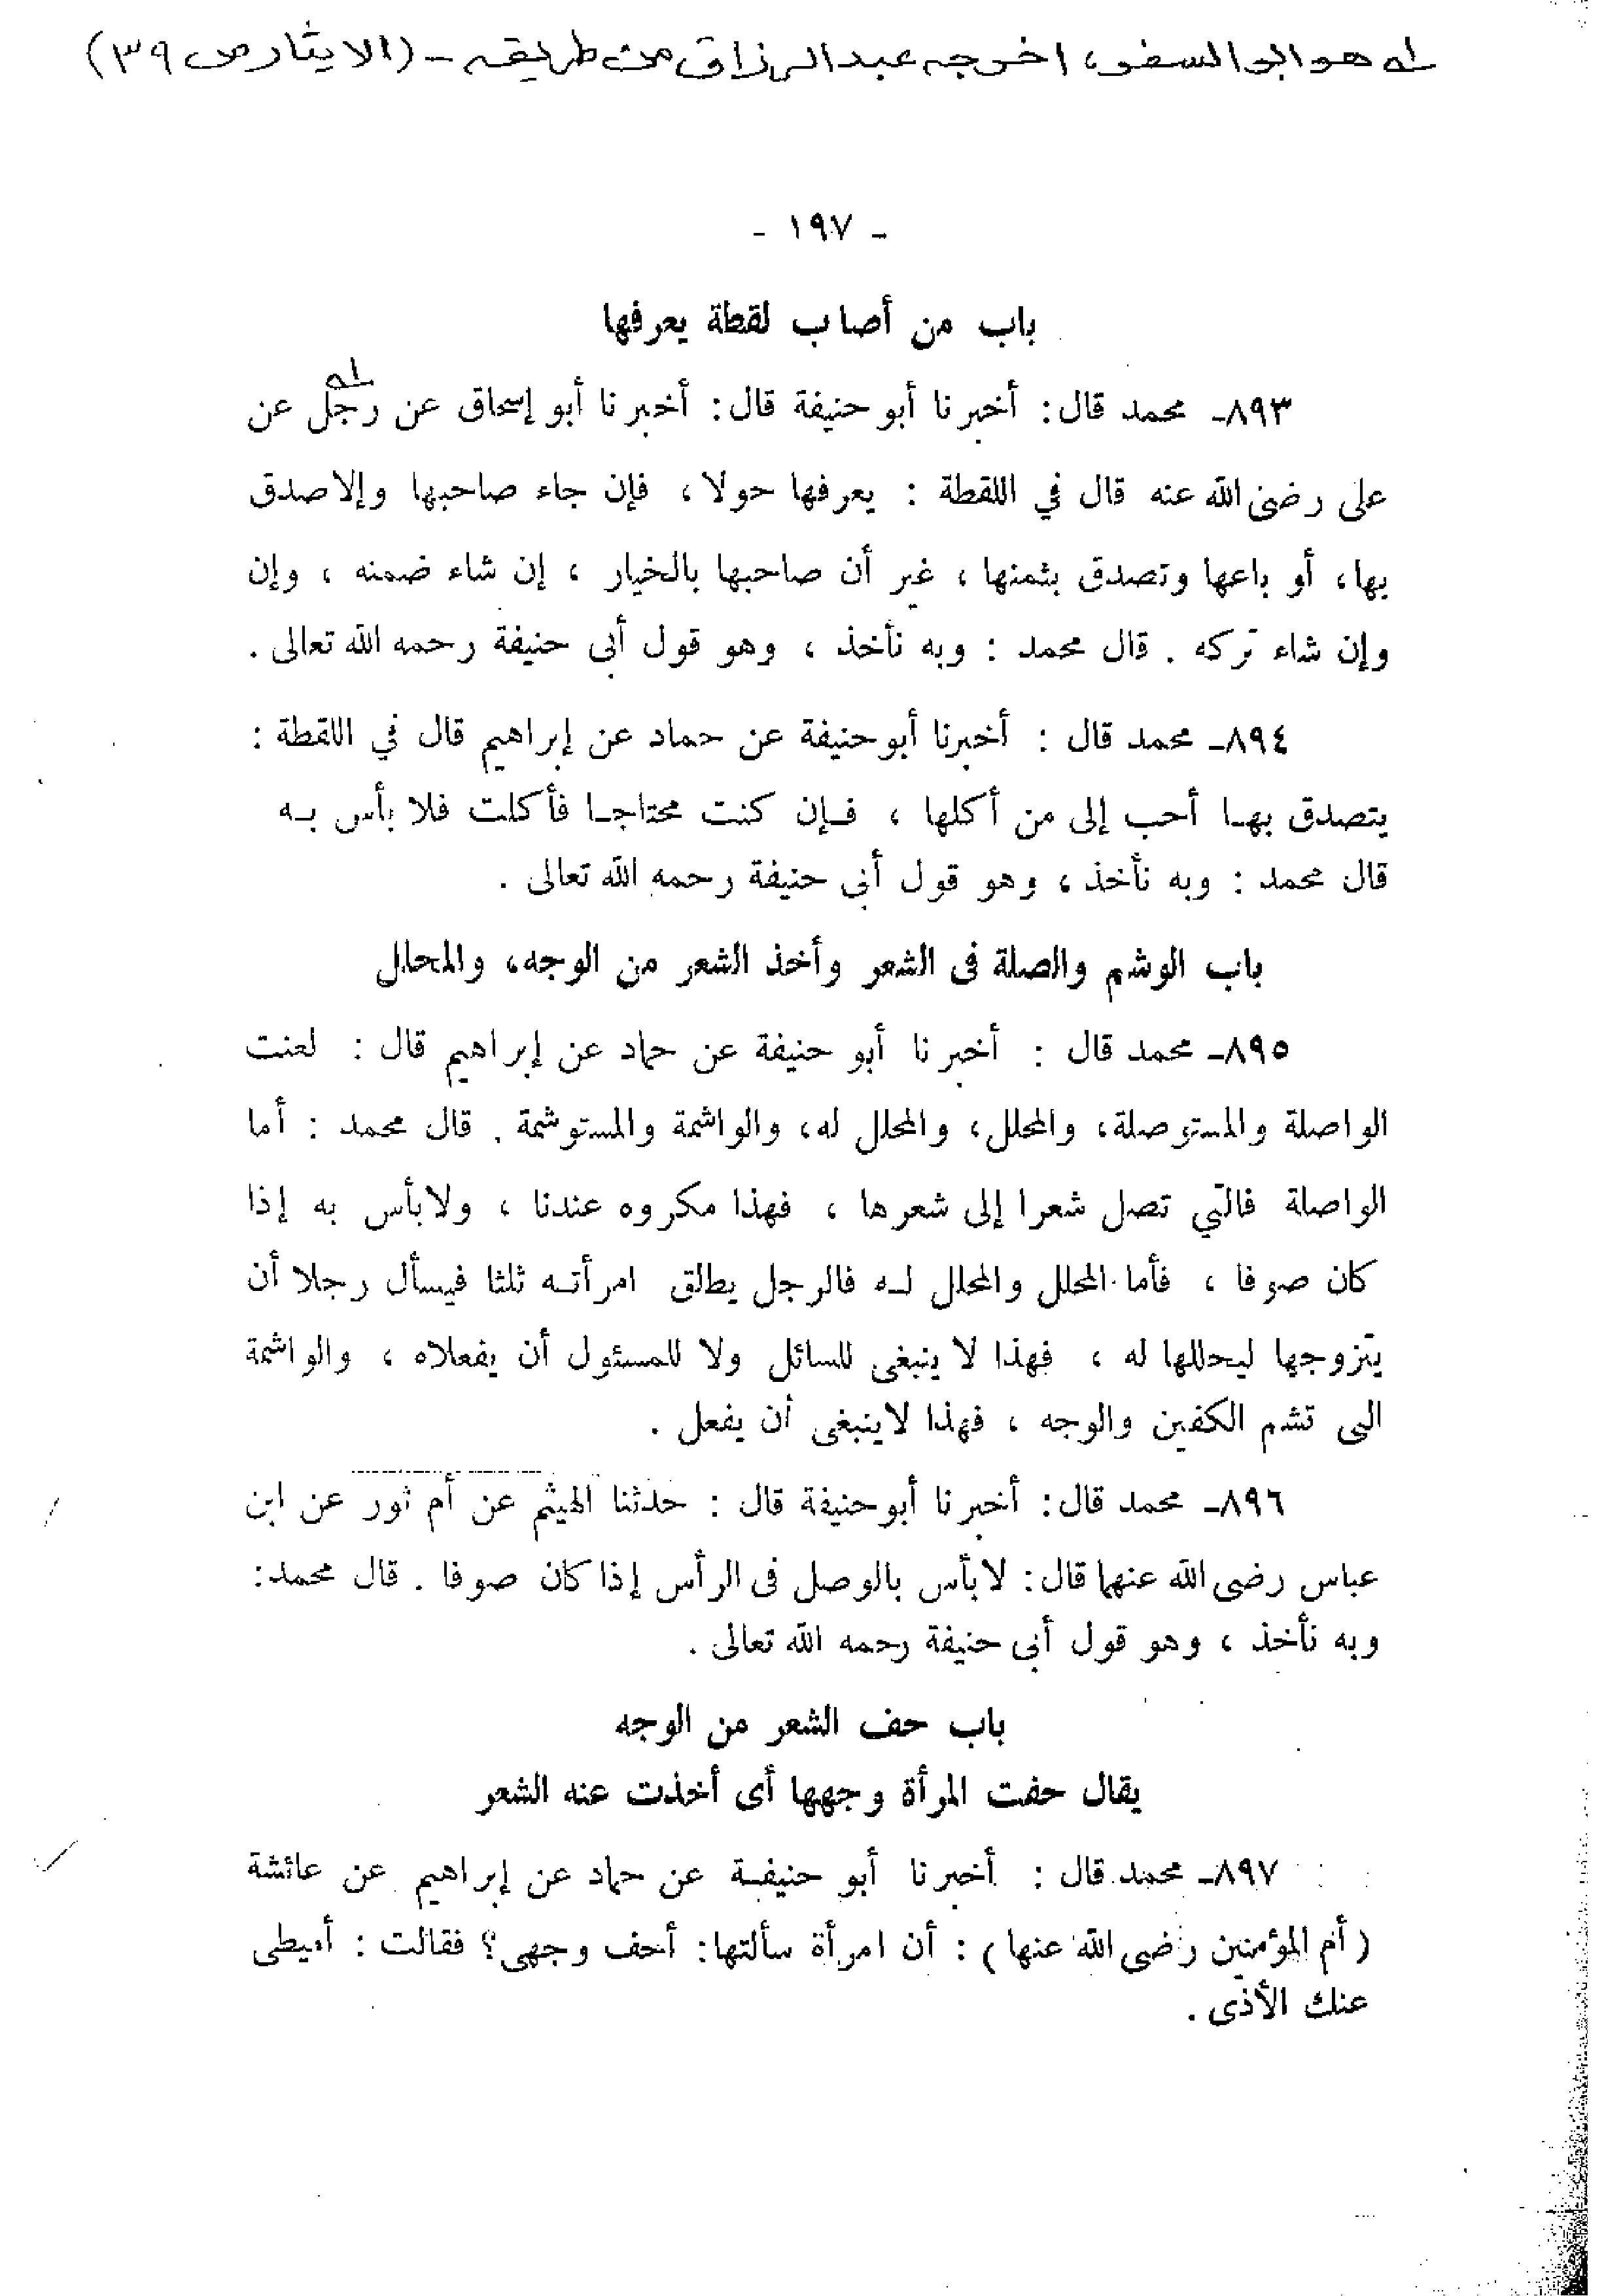 له هو ابو السفر، اخرجه عبد الرزاق من طريقه - (الايثار ص ٣٩)
- ١٩٧ -
باب من أصاب لقطة يعرفها
٨٩٣ـ محمد قال: أخبرنا أبو حنيفة قال: أخبرنا أبو إسحاق عن رجل له عن
على رضى الله عنه قال في اللقطة : يعرفها حولا، فإن جاء صاحبها وإلا صدق
بها، أو باعها وتصدق بثمنها، غير أن صاحبها بالخيار ، إن شاء ضمنه ، وإن
وإن شاء تركه . قال محمد : وبه نأخذ ، وهو قول أبى حنيفة رحمه الله تعالى .
٨٩٤ـ محمد قال : أخبرنا أبو حنيفة عن حماد عن إبراهيم قال في اللقطة :
يتصدق بهـا أحب إلى من أكلها ، فـإن كنت محتاجـا فأكلت فلا بأس بـه
قال محمد : وبه نأخذ ، وهو قول أبى حنيفة رحمه الله تعالى .
باب الوشم والصلة فى الشعر وأخذ الشعر من الوجه، والمحلل
٨٩٥ـ محمد قال : أخبرنا أبو حنيفة عن حماد عن إبراهيم قال : لعنت
الواصلة والمستوصلة، والمحلل، والمحلل له، والواشمة والمستوشمة . قال محمد : أما
الواصلة فالتي تصل شعرا إلى شعرها ، فهذا مكروه عندنا ، ولا بأس به إذا
كان صوفا ، فأما المحلل والمحلل لـه فالرجل يطلق امرأتـه ثلثا فيسأل رجلا أن
يتزوجها ليحللها له ، فهذا لا ينبغى للسائل ولا للمسئول أن يفعلاه ، والواشمة
التى تشم الكفين والوجه ، فهذا لاينبغى أن يفعل .
٨٩٦ـ محمد قال: أخبرنا أبو حنيفة قال : حدثنا الهيثم عن أم ثور عن ابن
عباس رضى الله عنهما قال: لا بأس بالوصل فى الرأس إذا كان صوفا . قال محمد:
وبه نأخذ ، وهو قول أبى حنيفة رحمه الله تعالى .
باب حف الشعر من الوجه
يقال حفت المرأة وجهها أى أخذت عنه الشعر
٨٩٧ـ محمد قال : أخبرنا أبو حنيفـة عن حماد عن إبراهيم عن عائشة
( أم المؤمنين رضى الله عنها ) : أن امرأة سألتها: أحف وجهى؟ فقالت : أميطى
عنك الأذى .